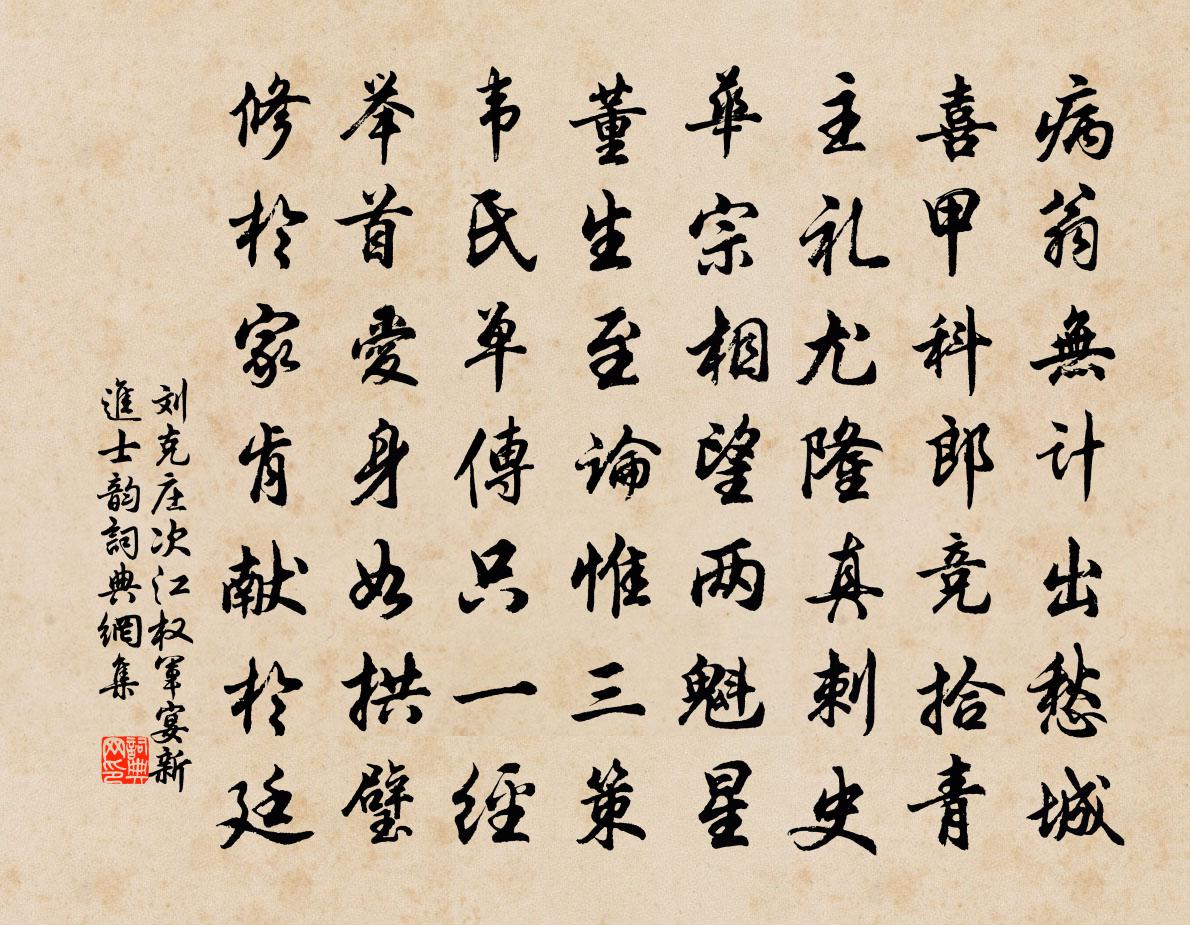 病翁無計出愁城
喜甲科郎竞拾青
主礼尤隆真刺史
華宗相望两魁星
董生至論惟三策
韦氏单傳只一經
举首愛身如拱璧
修於家肯献於廷
刘克庄次江权军宴新
進士韵詞典網集
詞典网印